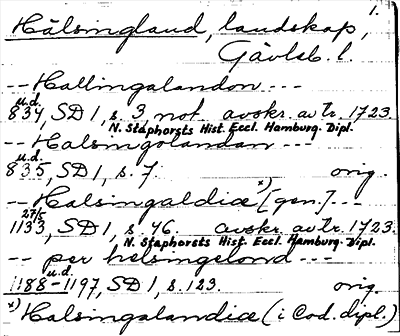 1.
Hälsingland, landskap,
Gävleb. l.
-- Hallingalandon ---
u.d.
834, SD 1, s. 3, not. avskr. av tr. 1723.
N. Staphorsts Hist. Eccl. Hamburg. Dipl.
-- Halsingolandan ---
u.d.
835, SD 1, s. 7. orig.
-- Halsingaldiæ x) [gen.] ---
27/5
1133, SD 1, s. 46. avskr. av tr. 1723.
N. Staphorsts Hist. Eccl. Hamburg. Dipl.
-- per helsingelond ---
u.d.
1188-1197, SD 1, s. 123. orig.
x) Halsingalandiæ (i Cod. dipl.)